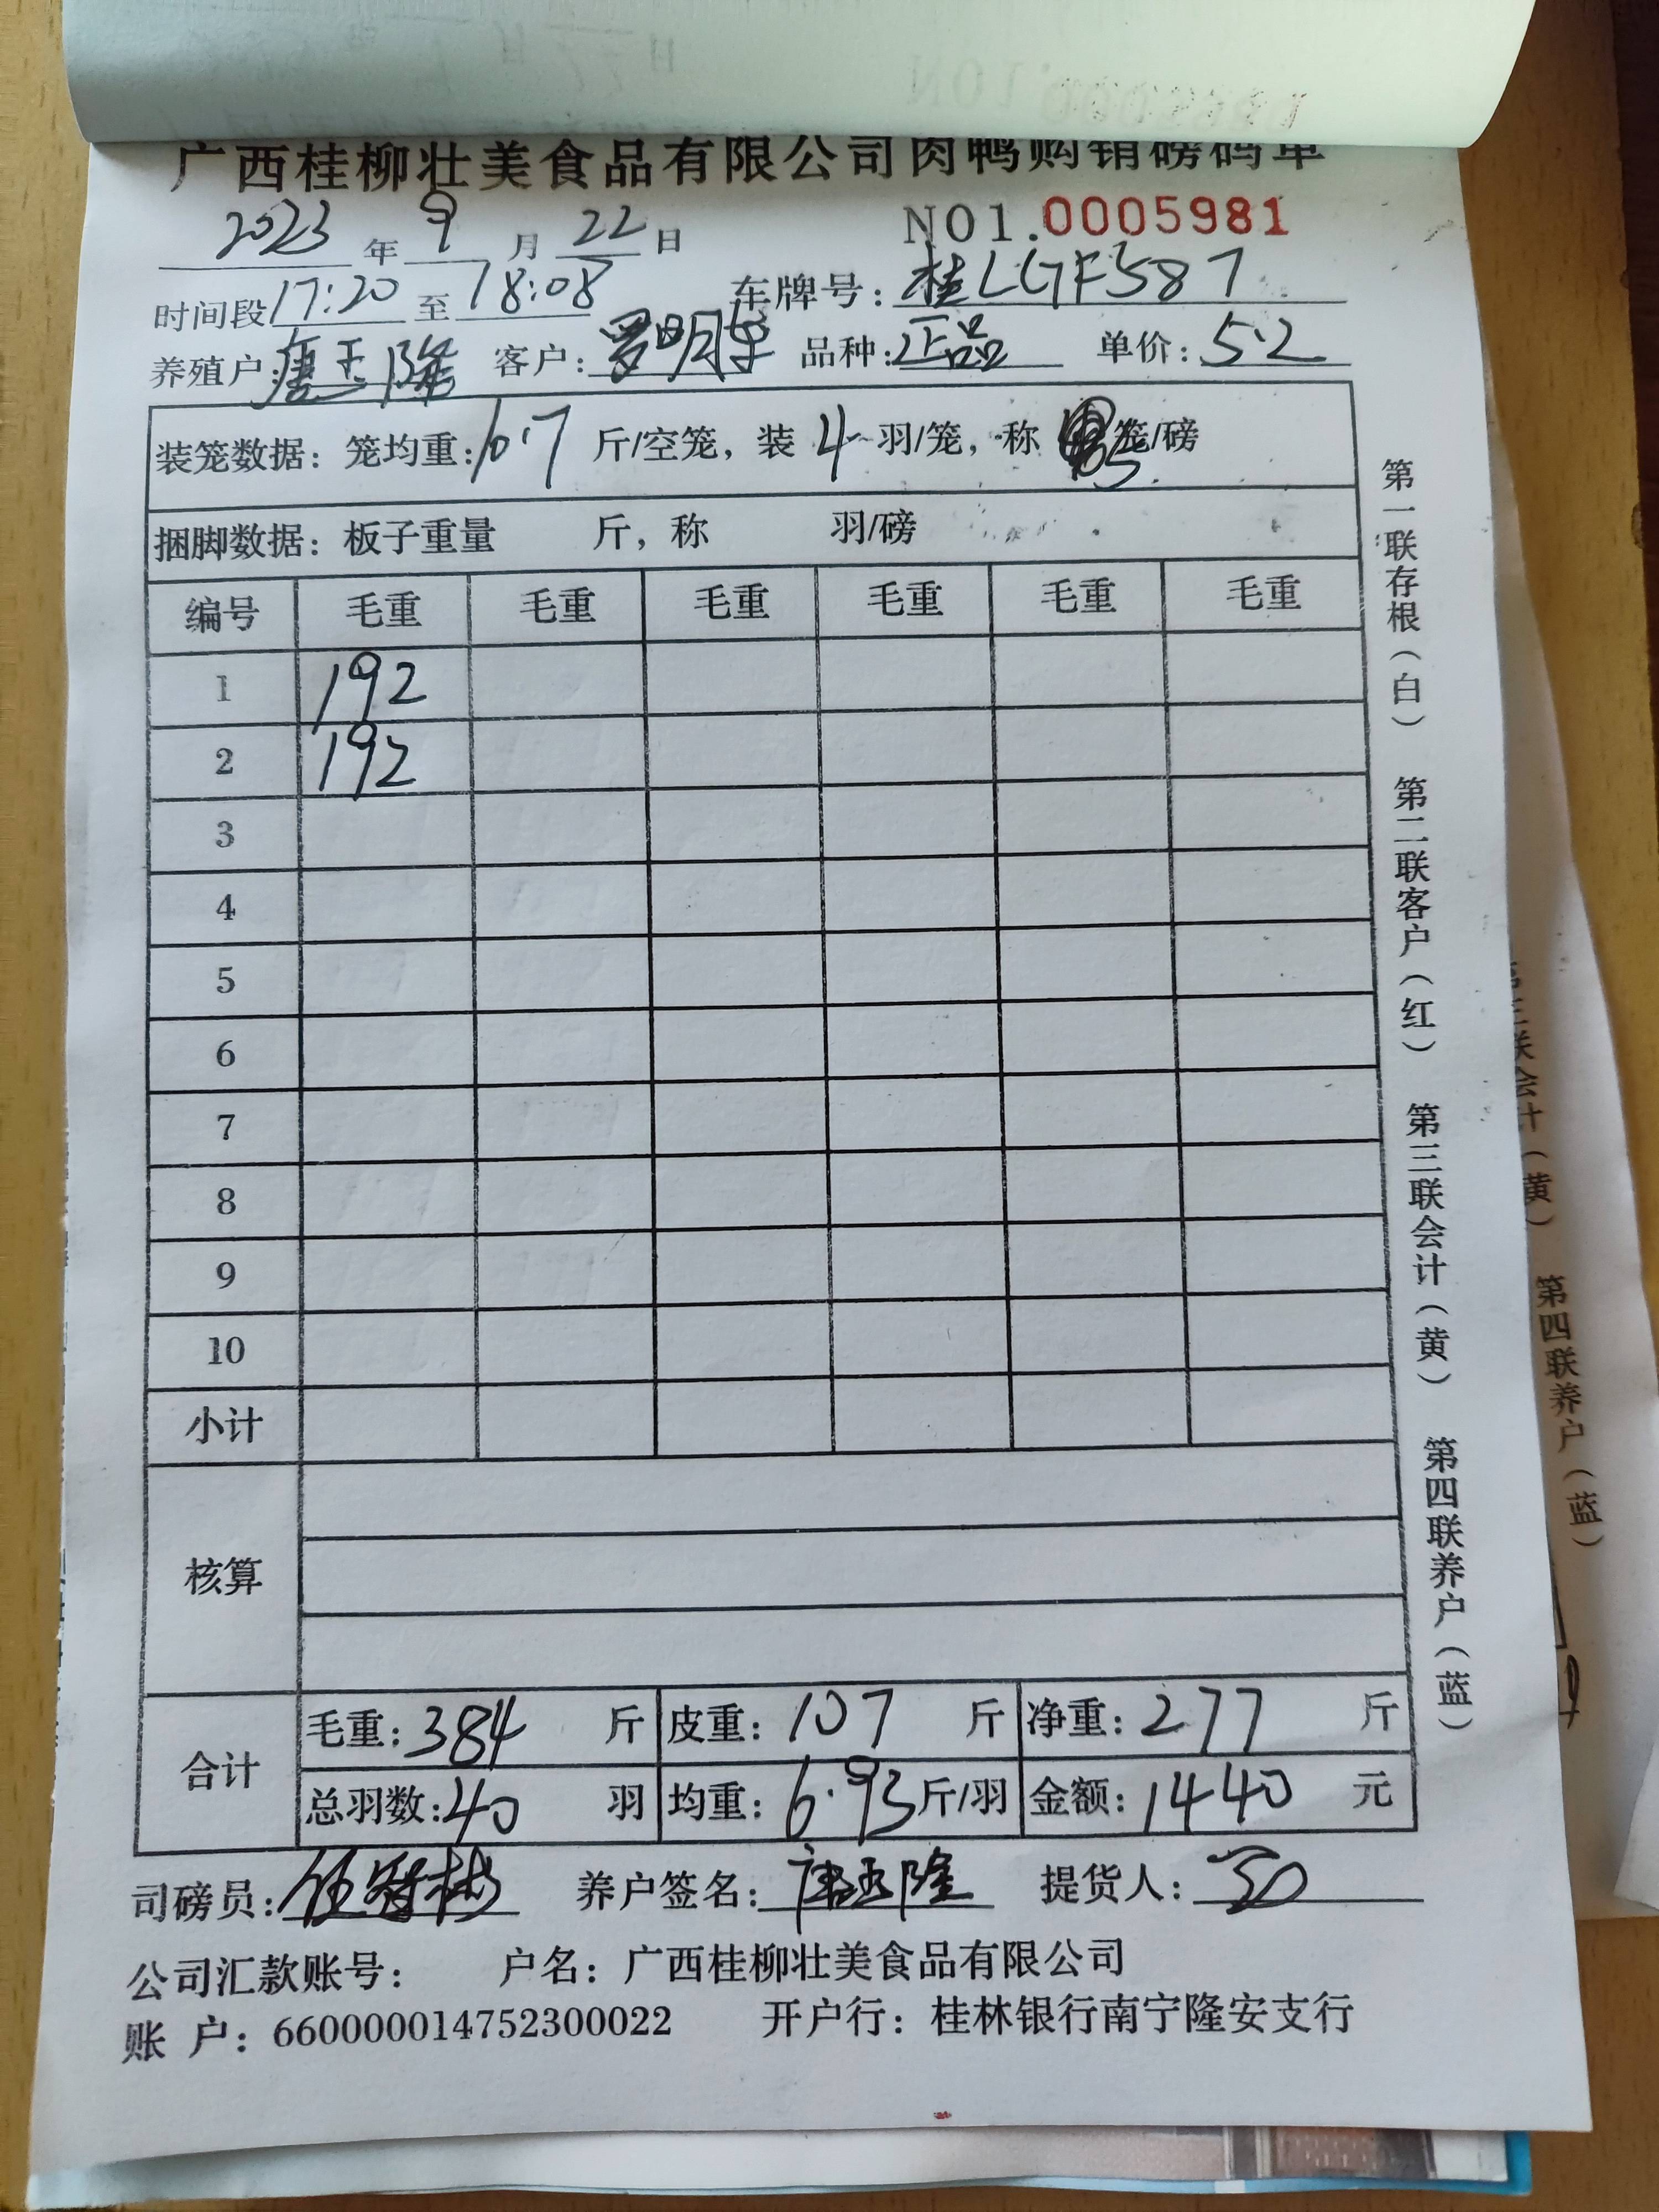 广西桂柳壮美食品有限公司肉鸭购销磅码单
2023年9月22日 NO1.0005981
时间段17:20至18:08 车牌号:桂LGF587
养殖户:唐玉隆 客户:罗明 品种:正品 单价:5.2
装笼数据:笼均重:10.7斤/空笼,装4羽/笼,称5笼/磅
捆脚数据:板子重量 斤,称 羽/磅
编号 毛重 毛重 毛重 毛重 毛重 毛重
1 192
2 192
3
4
5
6
7
8
9
10
小计
核算
合计 毛重:384斤 皮重:107斤 净重:277斤
总羽数:40羽 均重:6.93斤/羽 金额:1440元
司磅员: 养户签名:唐玉隆 提货人:
公司汇款账号: 户名:广西桂柳壮美食品有限公司
账 户:660000014752300022 开户行:桂林银行南宁隆安支行
第一联存根(白) 第二联客户(红) 第三联会计(黄) 第四联养户(蓝)
第三联会计(黄) 第四联养户(蓝)